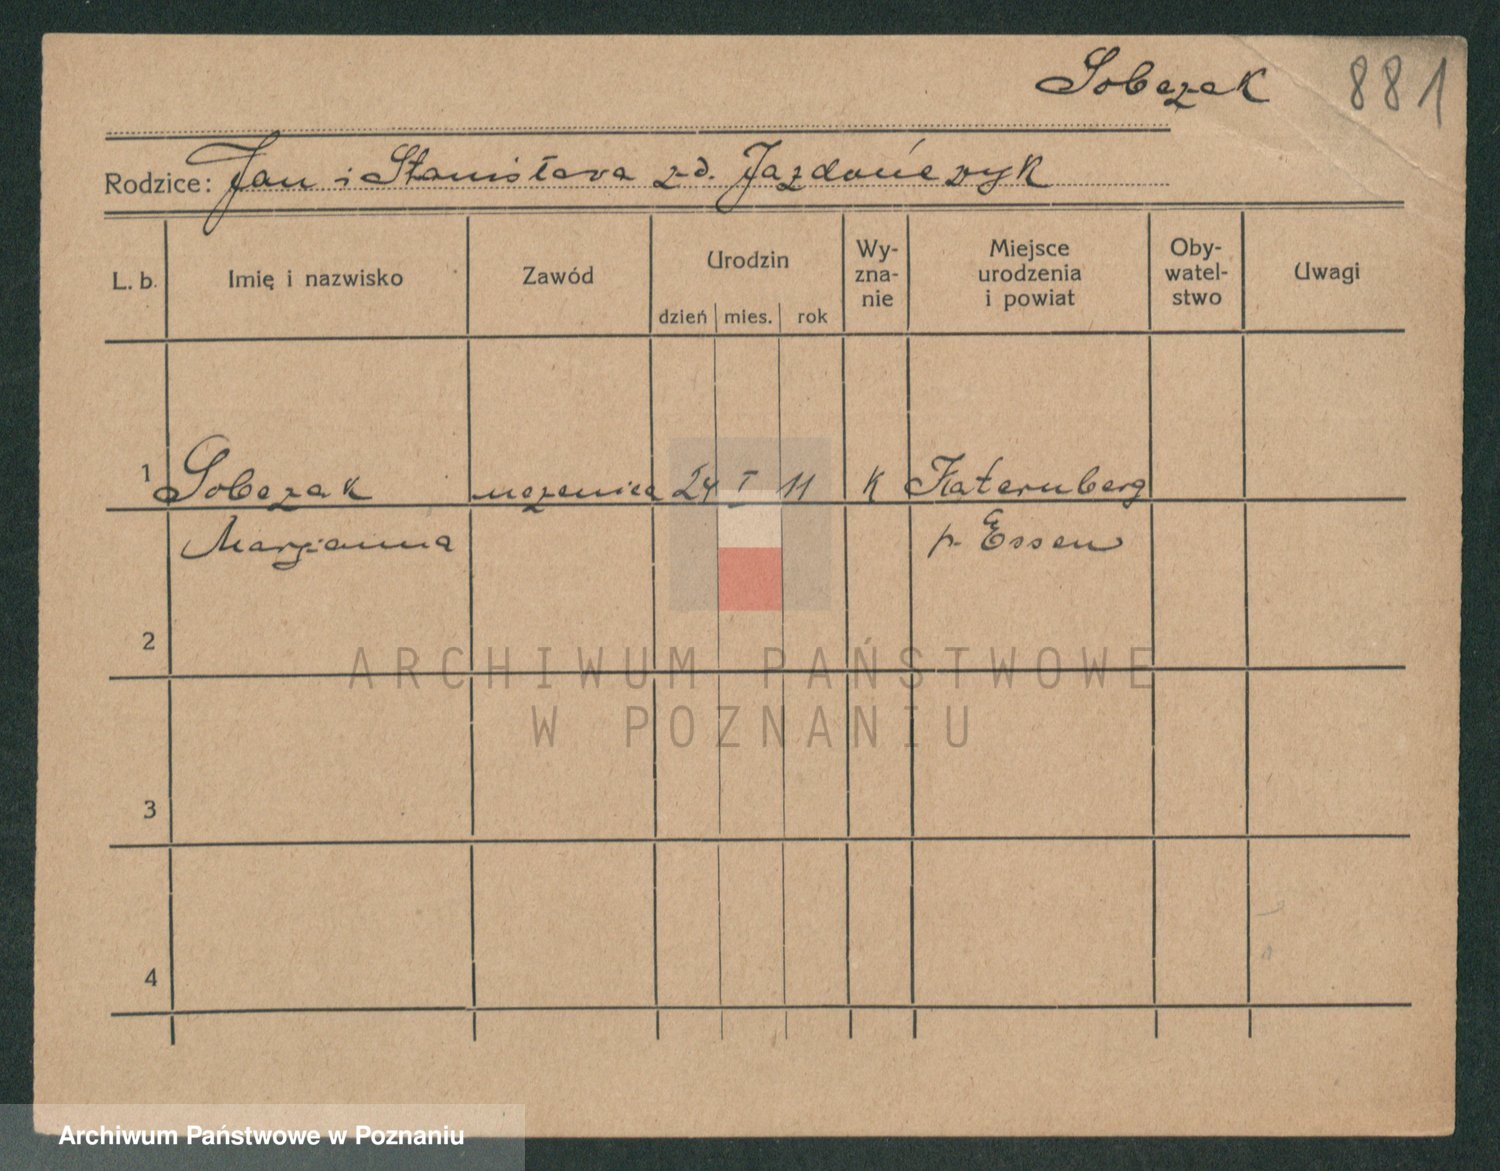 Sobczak 881
Rodzice: Jan i Stanisława z d. Jazdończyk
L. b. Imię i nazwisko Zawód Urodzin Wy-zna-nie Miejsce urodzenia i powiat Oby-watel-stwo Uwagi
dzień mies. rok
1 Sobczak uczenica 24 I 11 K Katernberg
Maryanna p. Essen
2
ARCHIWUM PAŃSTWOWE
W POZNANIU
3
4
Archiwum Państwowe w Poznaniu